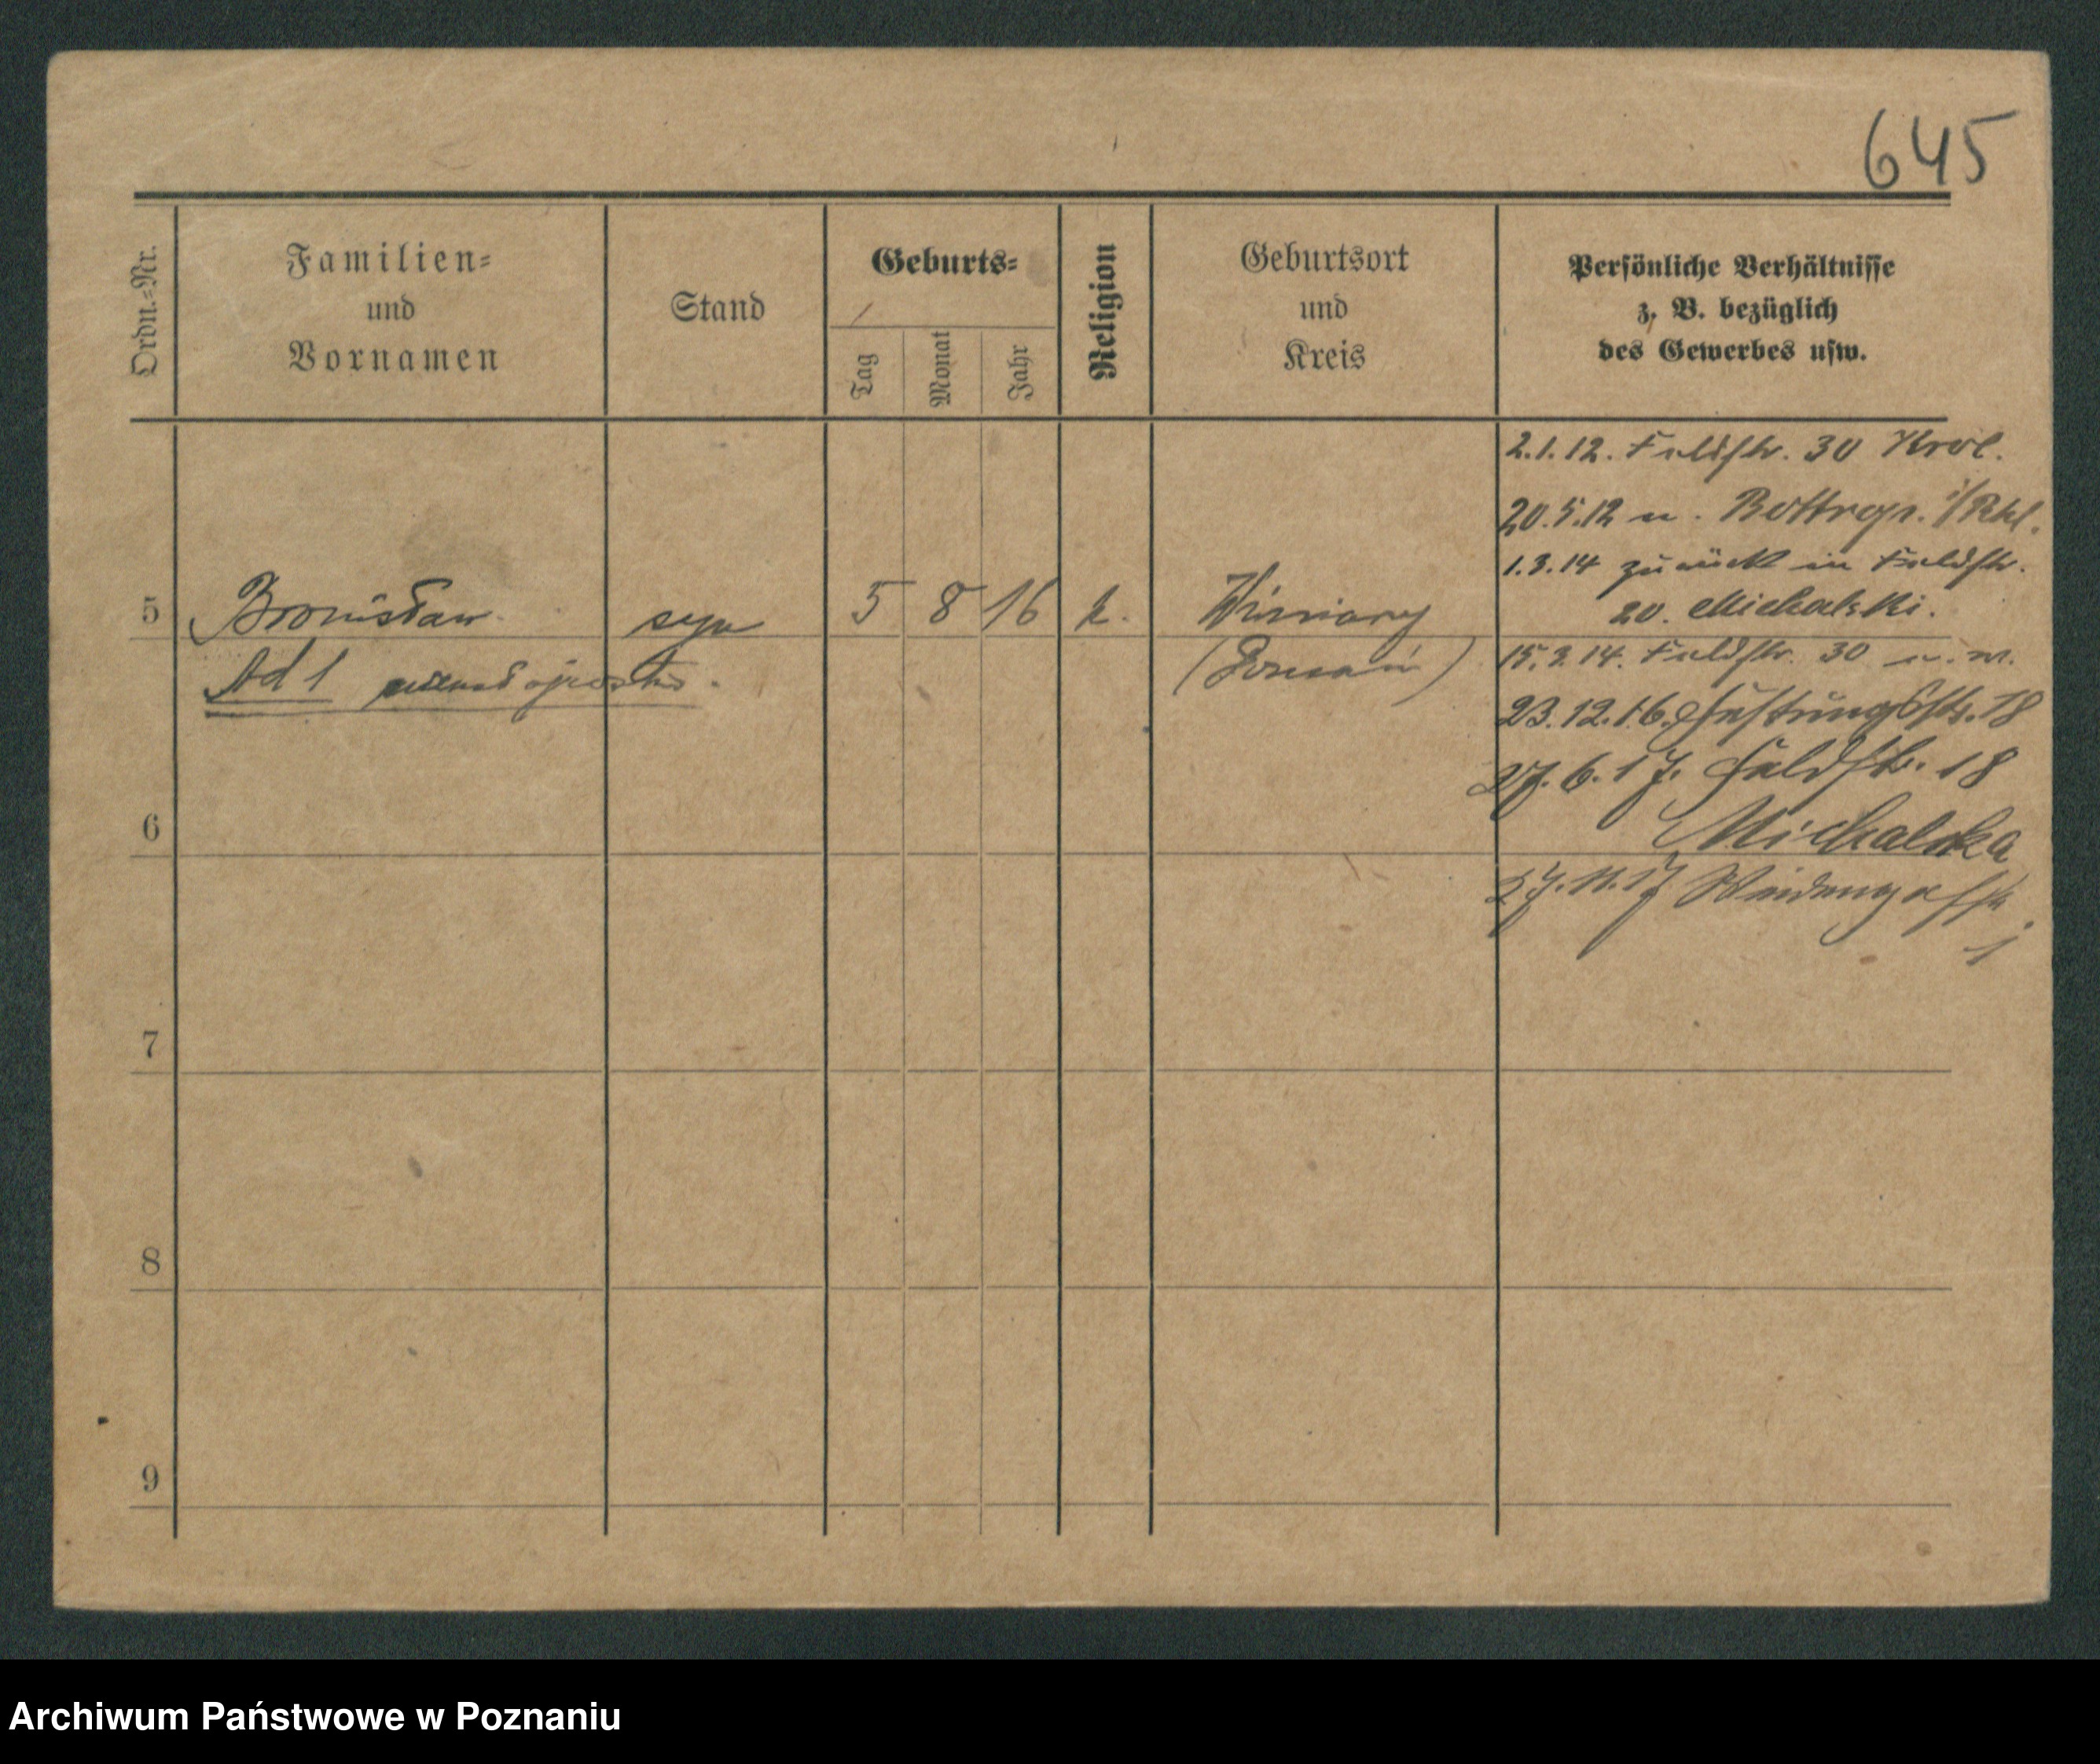 645
Ordn.-Nr.
Familien-
und
Vornamen
Stand
Geburts-
Tag
Monat
Jahr
Religion
Geburtsort
und
Kreis
Persönliche Verhältnisse
z. B. bezüglich
des Gewerbes usw.
2.1.12. Feldstr. 30 Krol.
20.5.12 n. Bottrop. i/Rhl.
1.3.14 zurück in Feldstr.
20. Michalski.
5 Bronisław syn 5 8 16 k. Winiary
(Poznań)
Ad 1
15.3.14. Feldstr. 30
23.12.16. Festungsstr. 18
27.6.17. Feldstr. 18
Michalska
6
27.11.17 Weidengasse
1
7
8
9
Archiwum Państwowe w Poznaniu